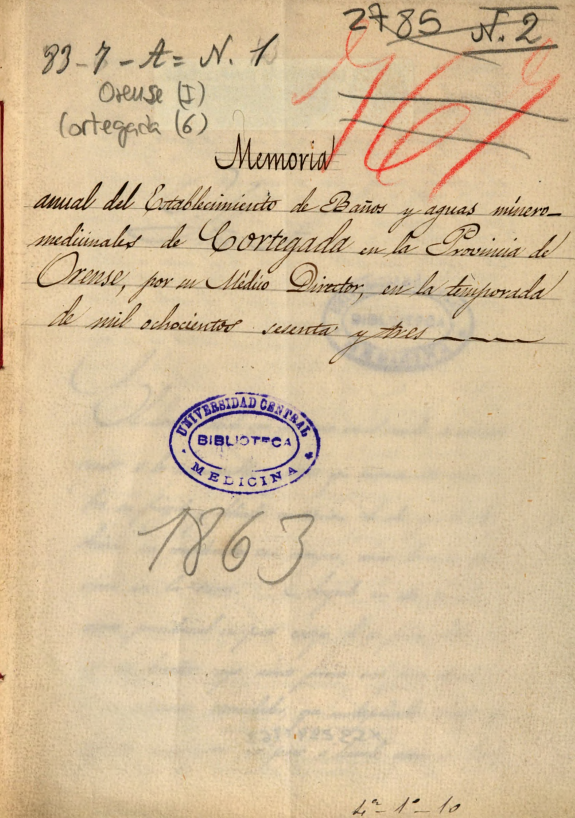 2785 N. 2
83-7-A= N. 1
Orense (I)
Cortegada (6)
Memoria
anual del Establecimiento de Baños y aguas minero-
medicinales de Cortegada en la Provincia de
Orense, por su Médico Director, en la temporada
de mil ochocientos sesenta y tres
UNIVERSIDAD CENTRAL
BIBLIOTECA
MEDICINA
1863
4ª-1ª-10